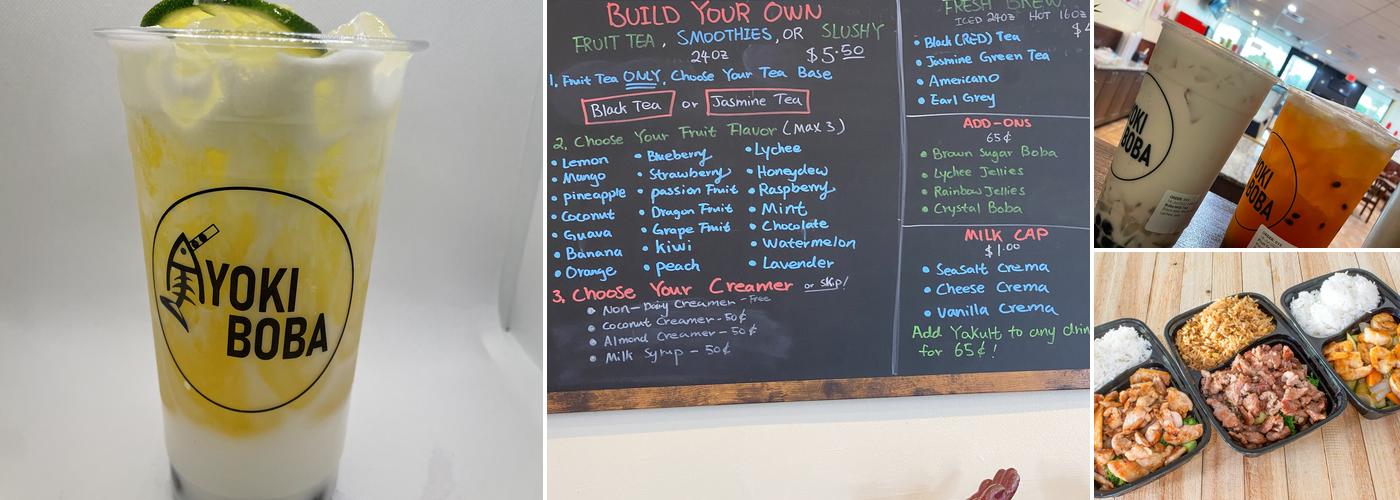 YOKI
BOBA
BUILD YOUR OWN
FRUIT TEA, SMOOTHIES, OR SLUSHY
24oz $5.50
1, Fruit Tea ONLY, Choose Your Tea Base
Black Tea or Jasmine Tea
2, Choose Your Fruit Flavor (max 3)
• Lemon • Blueberry • Lychee
• Mango • Strawberry • Honeydew
• pineapple • passion Fruit • Raspberry
• Coconut • Dragon Fruit • Mint
• Guava • Grape Fruit • Chocolate
• Banana • kiwi • Watermelon
• Orange • peach • Lavender
3, Choose Your Creamer or skip!
• Non-Dairy Creamer - Free
• Coconut Creamer - 50¢
• Almond Creamer - 50¢
• Milk Syrup - 50¢
FRESH BREW
ICED 24oz HOT 16oz
• Black (RED) Tea
• Jasmine Green Tea
• Americano
• Earl Grey
ADD-ONS
65¢
• Brown Sugar Boba
• Lychee Jellies
• Rainbow Jellies
• Crystal Boba
MILK CAP
$1.00
• Seasalt Crema
• Cheese Crema
• Vanilla Crema
Add Yakult to any drin
for 65¢!
YOKI
BOBA
YOKI
BOBA